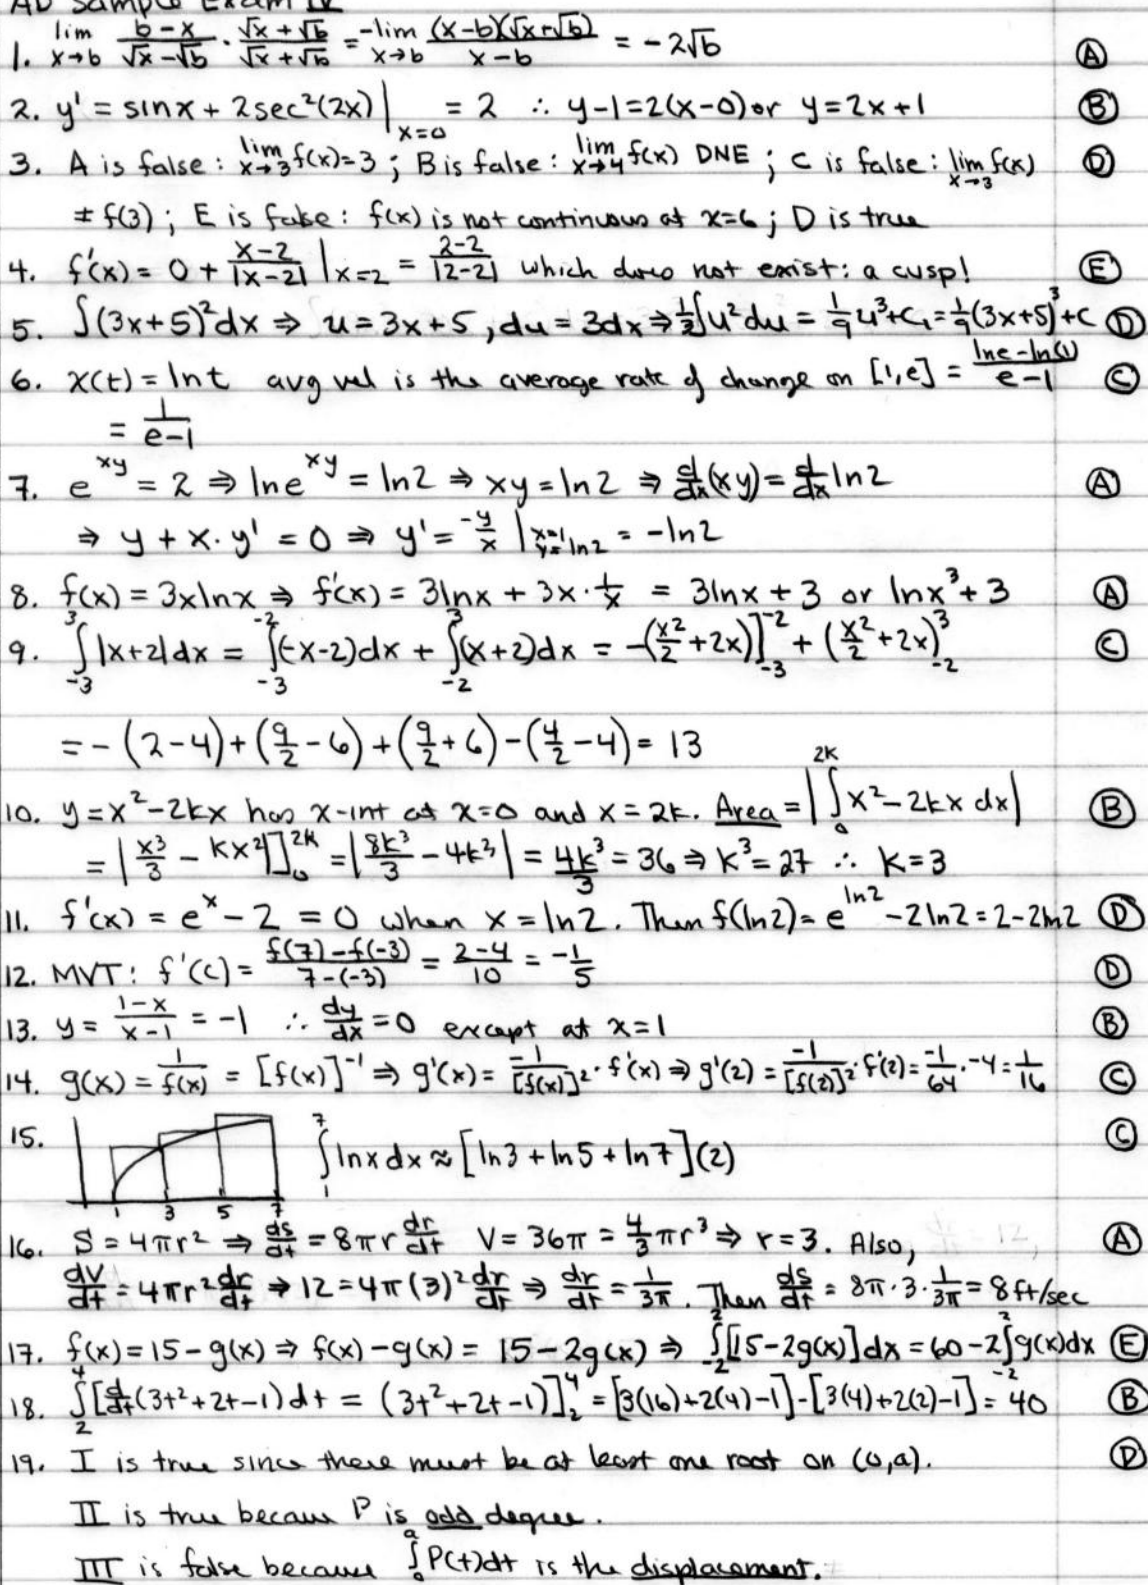 AB Sample Exam IV
1. lim x→b (b-x)/(√x-√b) · (√x+√b)/(√x+√b) = -lim x→b (x-b)(√x+√b)/(x-b) = -2√b (A)
2. y' = sinx + 2sec²(2x) |x=0 = 2 ∴ y-1=2(x-0) or y=2x+1 (B)
3. A is false: lim x→3 f(x)=3; B is false: lim x→4 f(x) DNE; C is false: lim x→3 f(x) (D)
≠ f(3); E is false: f(x) is not continuous at x=6; D is true
4. f'(x) = 0 + (x-2)/|x-2| |x=2 = (2-2)/|2-2| which does not exist: a cusp! (E)
5. ∫(3x+5)²dx ⇒ u=3x+5, du=3dx ⇒ 1/3∫u²du = 1/9u³+C₁=1/9(3x+5)³+C (D)
6. x(t)=lnt avg vel is the average rate of change on [1,e] = (lne-ln(1))/(e-1) (C)
= 1/(e-1)
7. e^xy = 2 ⇒ lne^xy = ln2 ⇒ xy=ln2 ⇒ d/dx(xy)=d/dx ln2 (A)
⇒ y+x·y' = 0 ⇒ y'=-y/x |x=1 y=ln2 = -ln2
8. f(x) = 3xlnx ⇒ f'(x) = 3lnx + 3x·1/x = 3lnx+3 or lnx³+3 (A)
9. ∫₋₃³|x+2|dx = ∫₋₃⁻²(-x-2)dx + ∫₋₂³(x+2)dx = -(x²/2+2x)]₋₃⁻² + (x²/2+2x)₋₂³ (C)
=-(2-4)+(9/2-6)+(9/2+6)-(4/2-4)=13
10. y=x²-2kx has x-int at x=0 and x=2k. Area=|∫₀²ᴷ x²-2kx dx| (B)
= |x³/3 - kx²|]₀²ᴷ = |8k³/3 - 4k³| = 4k³/3 = 36 ⇒ k³=27 ∴ k=3
11. f'(x) = e^x-2 = 0 when x=ln2. Then f(ln2)=e^ln2 -2ln2=2-2ln2 (D)
12. MVT: f'(c)= (f(7)-f(-3))/(7-(-3)) = (2-4)/10 = -1/5 (D)
13. y= (1-x)/(x-1) = -1 ∴ dy/dx=0 except at x=1 (B)
14. g(x)=1/f(x) = [f(x)]⁻¹ ⇒ g'(x)= -1/[f(x)]²·f'(x) ⇒ g'(2)= -1/[f(2)]²·f'(2)= -1/64·-4=1/16 (C)
15. 1 3 5 7 ∫₁⁷ lnxdx≈[ln3+ln5+ln7](2) (C)
16. S=4πr² ⇒ ds/dt=8πr dr/dt V=36π=4/3πr³ ⇒ r=3. Also, (A)
dV/dt=4πr²dr/dt ⇒ 12=4π(3)²dr/dt ⇒ dr/dt=1/3π. Then ds/dt=8π·3·1/3π=8ft/sec
17. f(x)=15-g(x) ⇒ f(x)-g(x) = 15-2g(x) ⇒ ∫₋₂²[15-2g(x)]dx=60-2∫₋₂²g(x)dx (E)
18. ∫₂⁴[d/dt(3t²+2t-1)dt = (3t²+2t-1)]₂⁴=[3(16)+2(4)-1]-[3(4)+2(2)-1]=40 (B)
19. I is true since there must be at least one root on (0,a). (D)
II is true because P is odd degree.
III is false because ∫₀ᵃP(t)dt is the displacement.